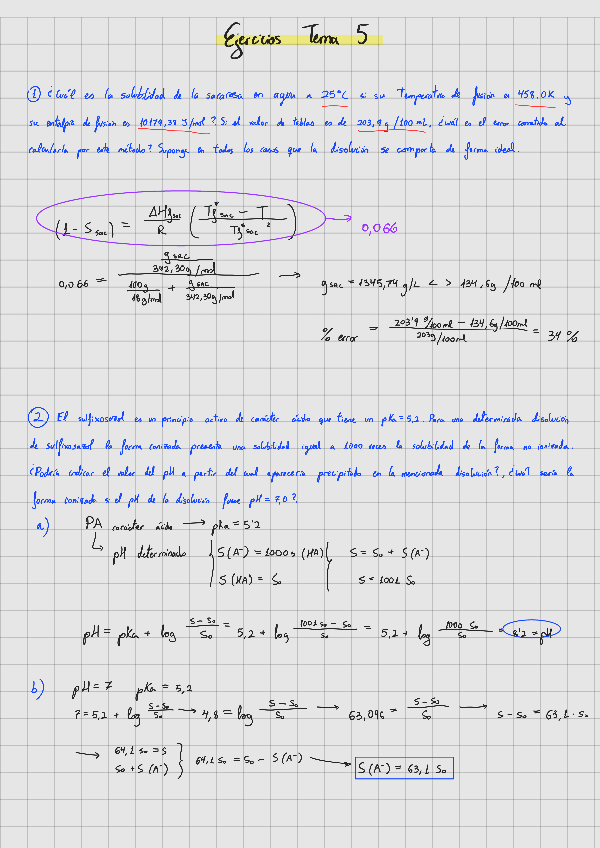 Ejercicios Tema 5
① ¿Cuál es la solubilidad de la sacarosa en agua a 25°C si su Temperatura de fusión es 458.0K y
su entalpia de fusión es 10179,38 J/mol? Si el valor de tablas es de 203,9 g/100 mL, ¿cuál es el error cometido al
calcularla por este método? Suponga en todos los casos que la disolución se comporta de forma ideal.
(1 - S sac) = ΔHf sac / R ( Tf* sac - T / Tf* sac ² ) → 0,066
0,066 = (g sac / 342,30g/mol) / (100g / 18 g/mol + g sac / 342,30g/mol) → g sac = 1345,74 g/L < > 134,6g /100 ml
% error = 203'9 g/100ml - 134,6g/100ml / 203g/100ml = 34 %
② El sulfixosazol es un principio activo de carácter ácido que tiene un pKa = 5,2. Para una determinada disolución
de sulfixosazol la forma ionizada presenta una solubilidad igual a 1000 veces la solubilidad de la forma no ionizada.
¿Podría indicar el valor del pH a partir del cual aparecería precipitado en la mencionada disolución?, ¿cuál sería la
forma ionizada si el pH de la disolución fuese pH = 7,0?
a) PA carácter ácido → pka = 5'2
↳ pH determinado { S(A⁻) = 1000 S (HA) { S = S₀ + S(A⁻)
S(HA) = S₀ S = 1001 S₀
pH = pKa + log S - S₀ / S₀ = 5,2 + log 1001 S₀ - S₀ / S₀ = 5,2 + log 1000 S₀ / S₀ = 8'2 = pH
b) pH = 7 pKa = 5,2
7 = 5,2 + log S - S₀ / S₀ → 4,8 = log S - S₀ / S₀ → 63,096 = S - S₀ / S₀ → S - S₀ = 63,1 · S₀
→ 64,1 S₀ = S } 64,1 S₀ = S₀ - S(A⁻) → S(A⁻) = 63,1 S₀
S₀ + S(A⁻)